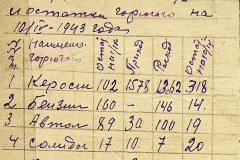 и остатки горючего на
10/IV-1943 года
Наимено. Остат. Приход Расход Остат.
горючего на 1/IV на 10/IV
1 Керосин 102 1578 1262 318
2 Бензин 160 - 146 14.
3 Автол 89 30 100 19
4 Солидол 17 10 7 20